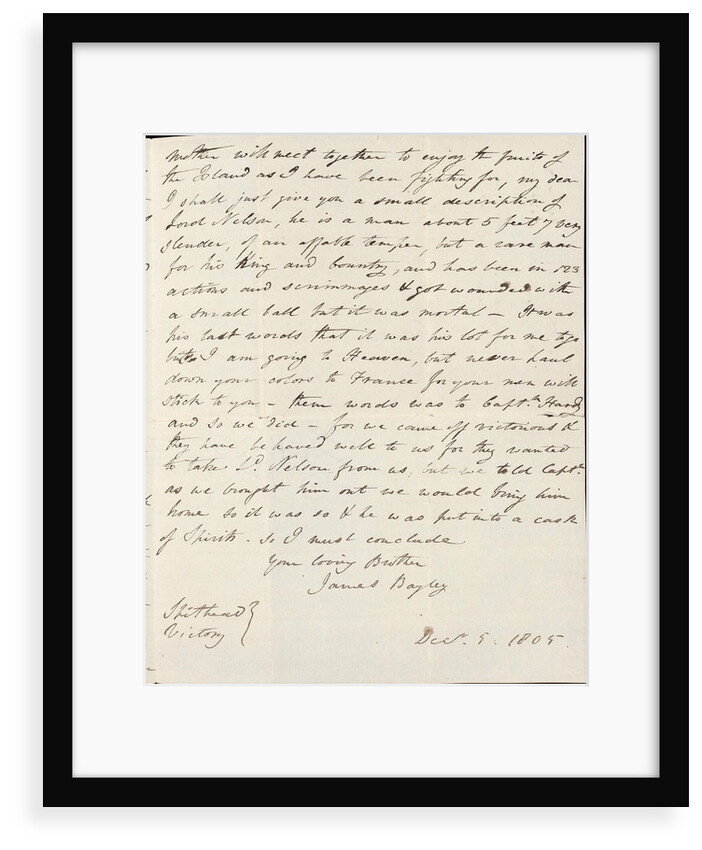 Mother will meet together to enjoy the fruits of
the Island as I have been fighting for, my dear
I shall just give you a small description of
Lord Nelson, he is a man about 5 feet 7 very
slender, of an affable temper, but a rare man
for his King and Country, and has been in 123
actions and scrimmages & got wounded with
a small ball but it was mortal – It was
his last words that it was his lot for me to go
but I am going to Heaven, but never haul
down your colors to France for your men will
stick to you – them words was to Captn. Hardy
and so we did – for we came off victorious &
they have behaved well to us for they wanted
to take Ld. Nelson from us, but we told Captn.
as we brought him out we would bring him
home so it was so & he was put into a cask
of Spirits. So I must conclude
Your loving Brother
James Bayley
Spithead
Victory
Decr. 5. 1805.